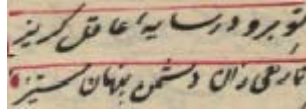 تو برو در سایه عاقل گریز
تا رهی زان دشمن پنهان ستیز